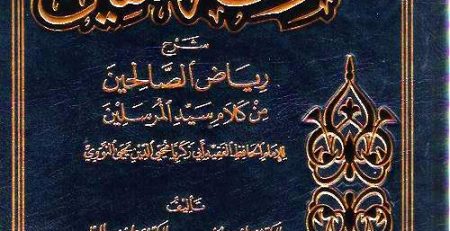 شرح
رِيَاض الصَّالِحِين
مِن كَلَامِ سَيِّدِ المُرسَلِينَ
للإمام الحافظ الفقيه أبي زكريا محيي الدين يحيى النووي
تأليف